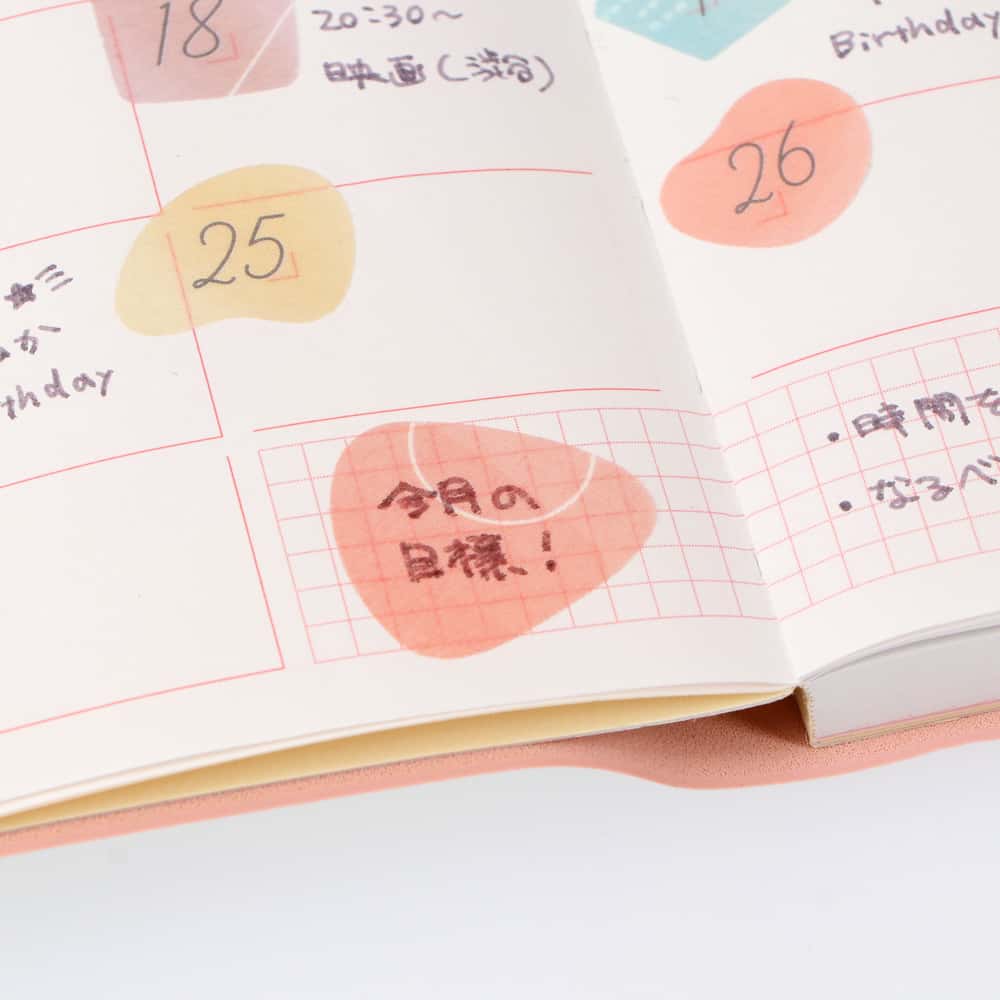 18
20:30～
映画(渋谷)
Birthday
25
26
か
thday
今月の
目標!
・時間を
・なるべ